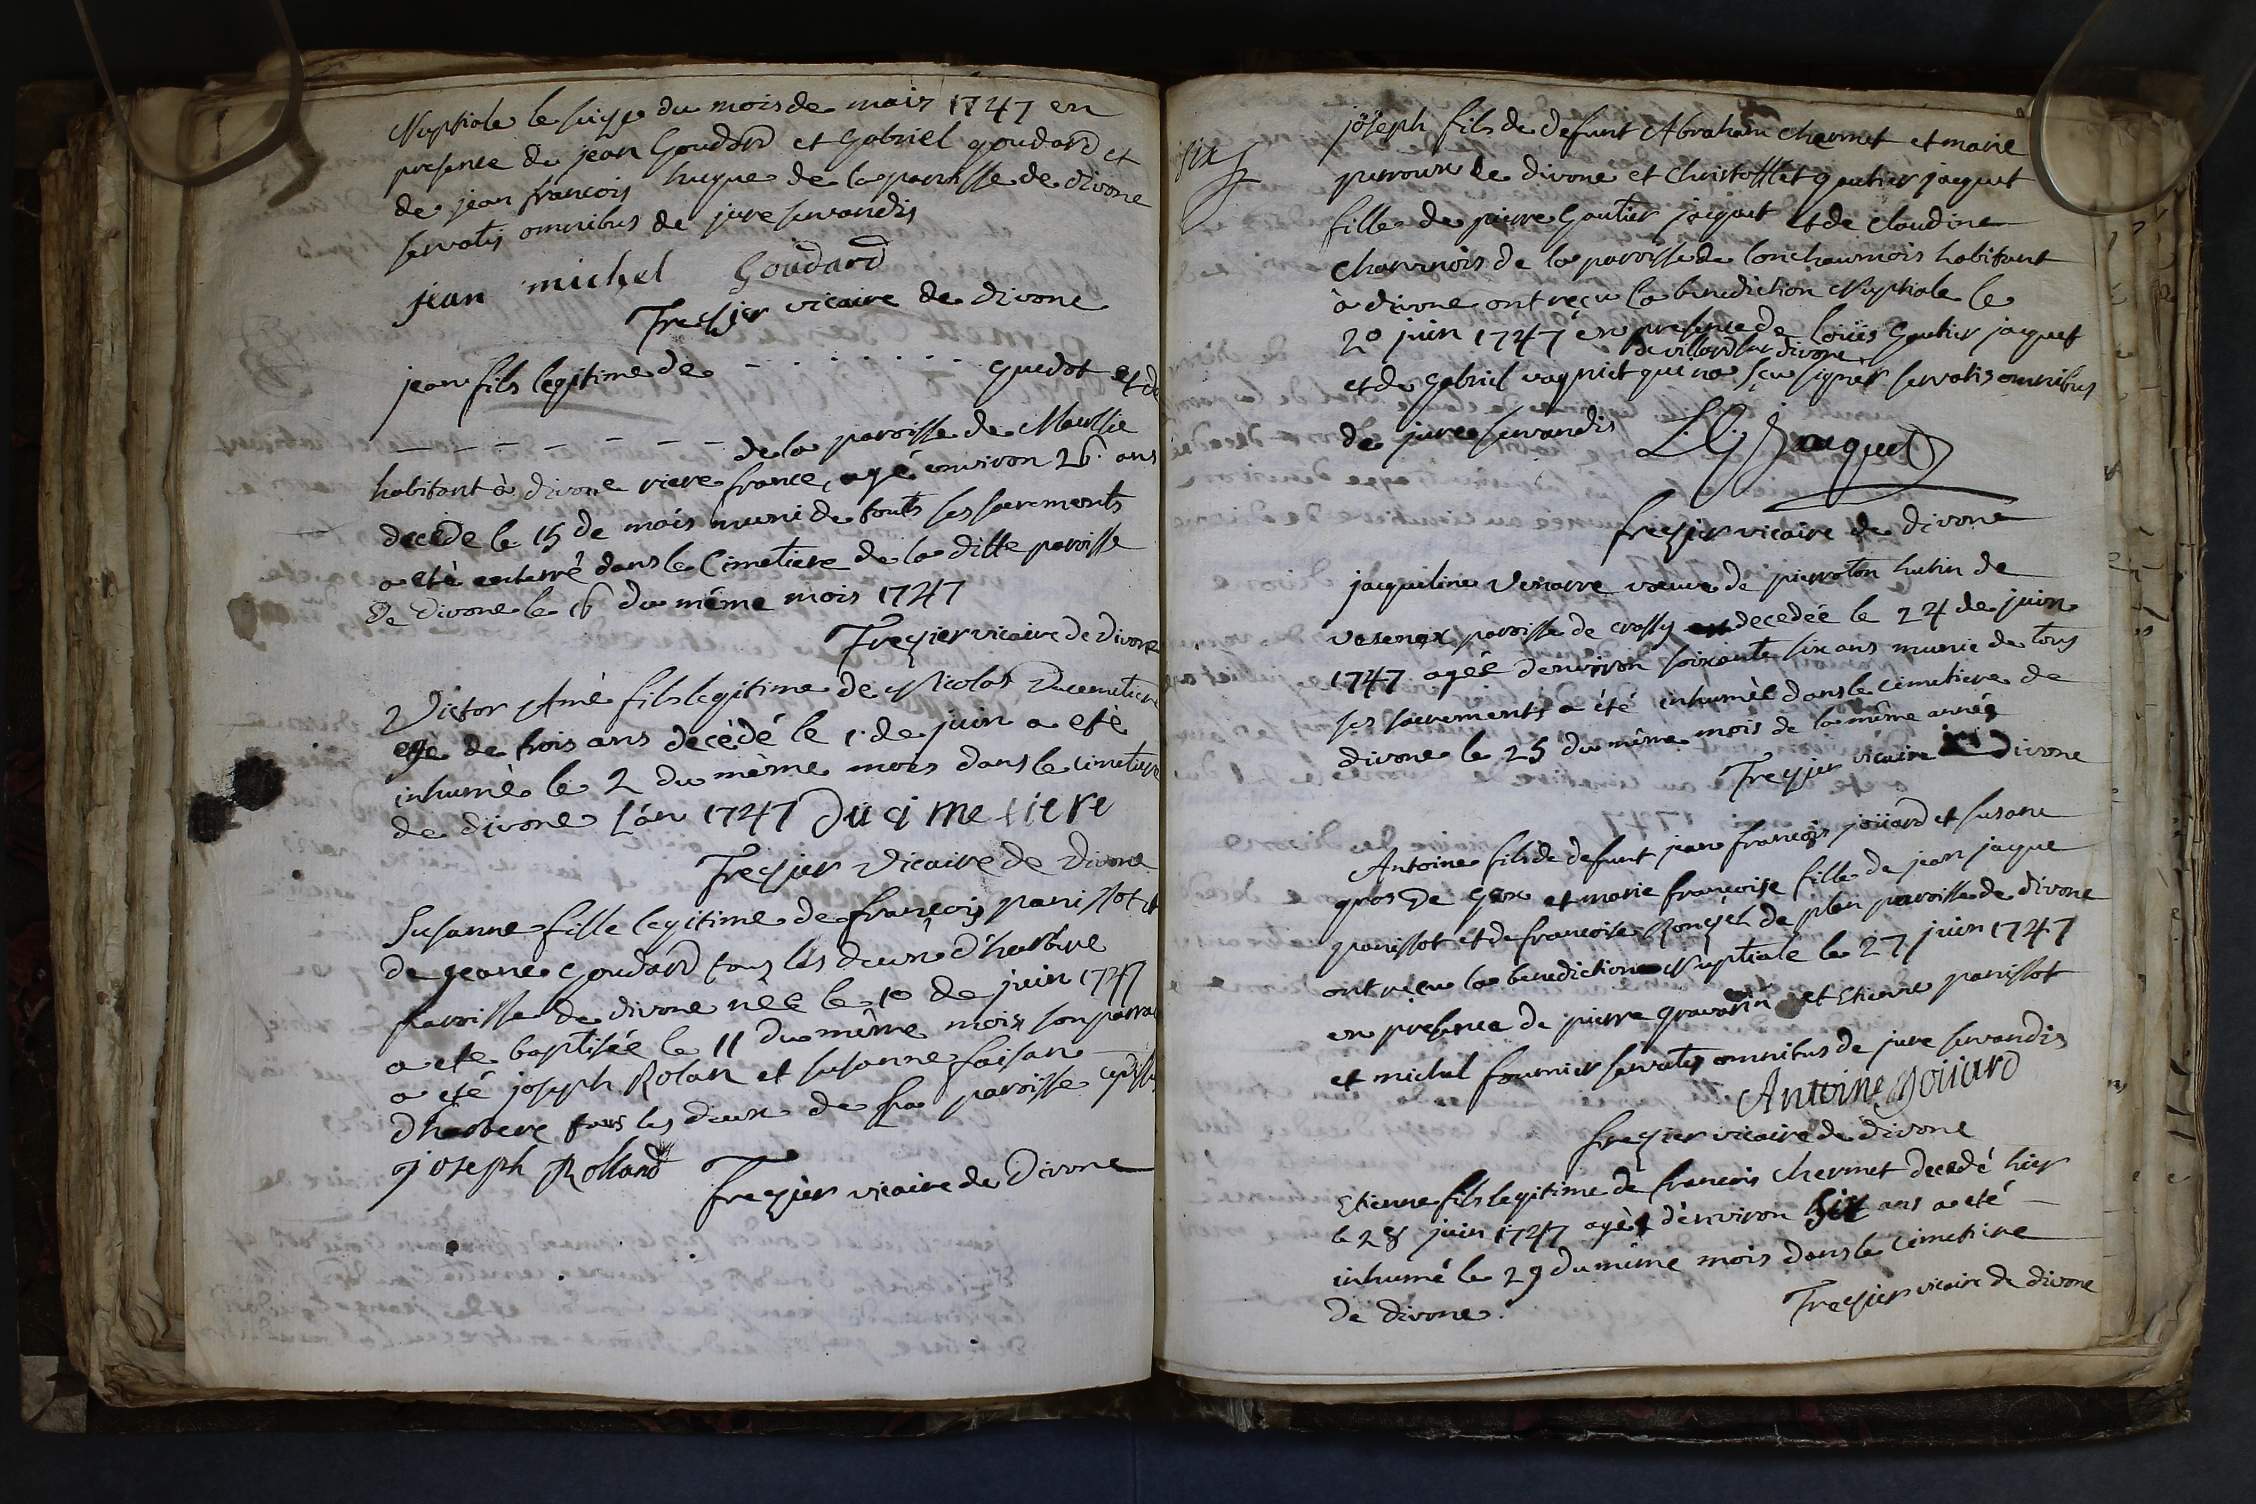 Nuptiale le seize du mois de mais 1747 en
presence de jean Goudard et Gabriel goudard et
de jean francois huque de la paroisse de divone
servatis omnibus de jure servandis
jean michel Goudard
Fresier vicaire de divone
jean fils legitime de - - - - - - - - guedot et de
- - - - - - - de la paroisse de
habitant à divone riere france, agé environ 26 ans
decede le 15 de mais muni de touts ses sacrements
a eté enterré dans le Cimetiere de la ditte paroisse
De divone le 16 du même mois 1747
Fresier vicaire de Divone
Victor Amé fils legitime de Nicolas Ducemetiere
age de trois ans decédé le 1. de juin a eté
inhumé le 2 du même mois dans le cimetiere
de divone l'an 1747 Du ci me tiere
Fresier Vicaire de Divone
Susanne fille legitime de françois panissot et
de jeane goudard tous les deux d'harbere
paroisse de divone née le 10 de juin 1747
a ete baptisée le 11 du même mois son parrain
a eté joseph Rolan et susanne faisan
d'harbere tous les deux de sa paroisse
joseph Rolland Fresier vicaire de Divone
joseph fils de defunt Abraham Chermet et marie
de divone et gautier jaquet
fille de pierre Gautier jaquet et de claudine
charnois de la paroisse de lonchaumois habitant
à divone ont reçu la benediction Nuptiale le
20 juin 1747 en presence de loüis Gautier jaquet
de villard sur divone
et de Gabriel vagniet qui na sçu signer servatis omnibus
de jure servandis L. G. Jaquet
fresier vicaire de divone
jacqueline venarre vœuve de pierroton hutin de
vesenex paroisse de crassy decedée le 24 de juin
1747 agée denviron soixante six ans munie de tous
ses sacrements a été inhumée dans le cimetiere de
divone le 25 du même mois de la même année
Fresier vicaire de Divone
Antoine fils de defunt jean françois joüard et susane
gros De Gex et marie françoise fille de jean jaque
panissot et de francoise Ronzel de plan paroisse de divone
ont reçu la benediction Nuptiale le 27 juin 1747
en presence de pierre gravarin et Etienne panissot
et michel fournier servatis omnibus de jure servandis
Antoine Joüard
fresier vicaire de divone
Etienne fils legitime de francois Chermet decedé hier
le 28 juin 1747 agé d'environ six ans a eté
inhumé le 29 du même mois dans le cimetiere
de divone. Fresier vicaire de divone